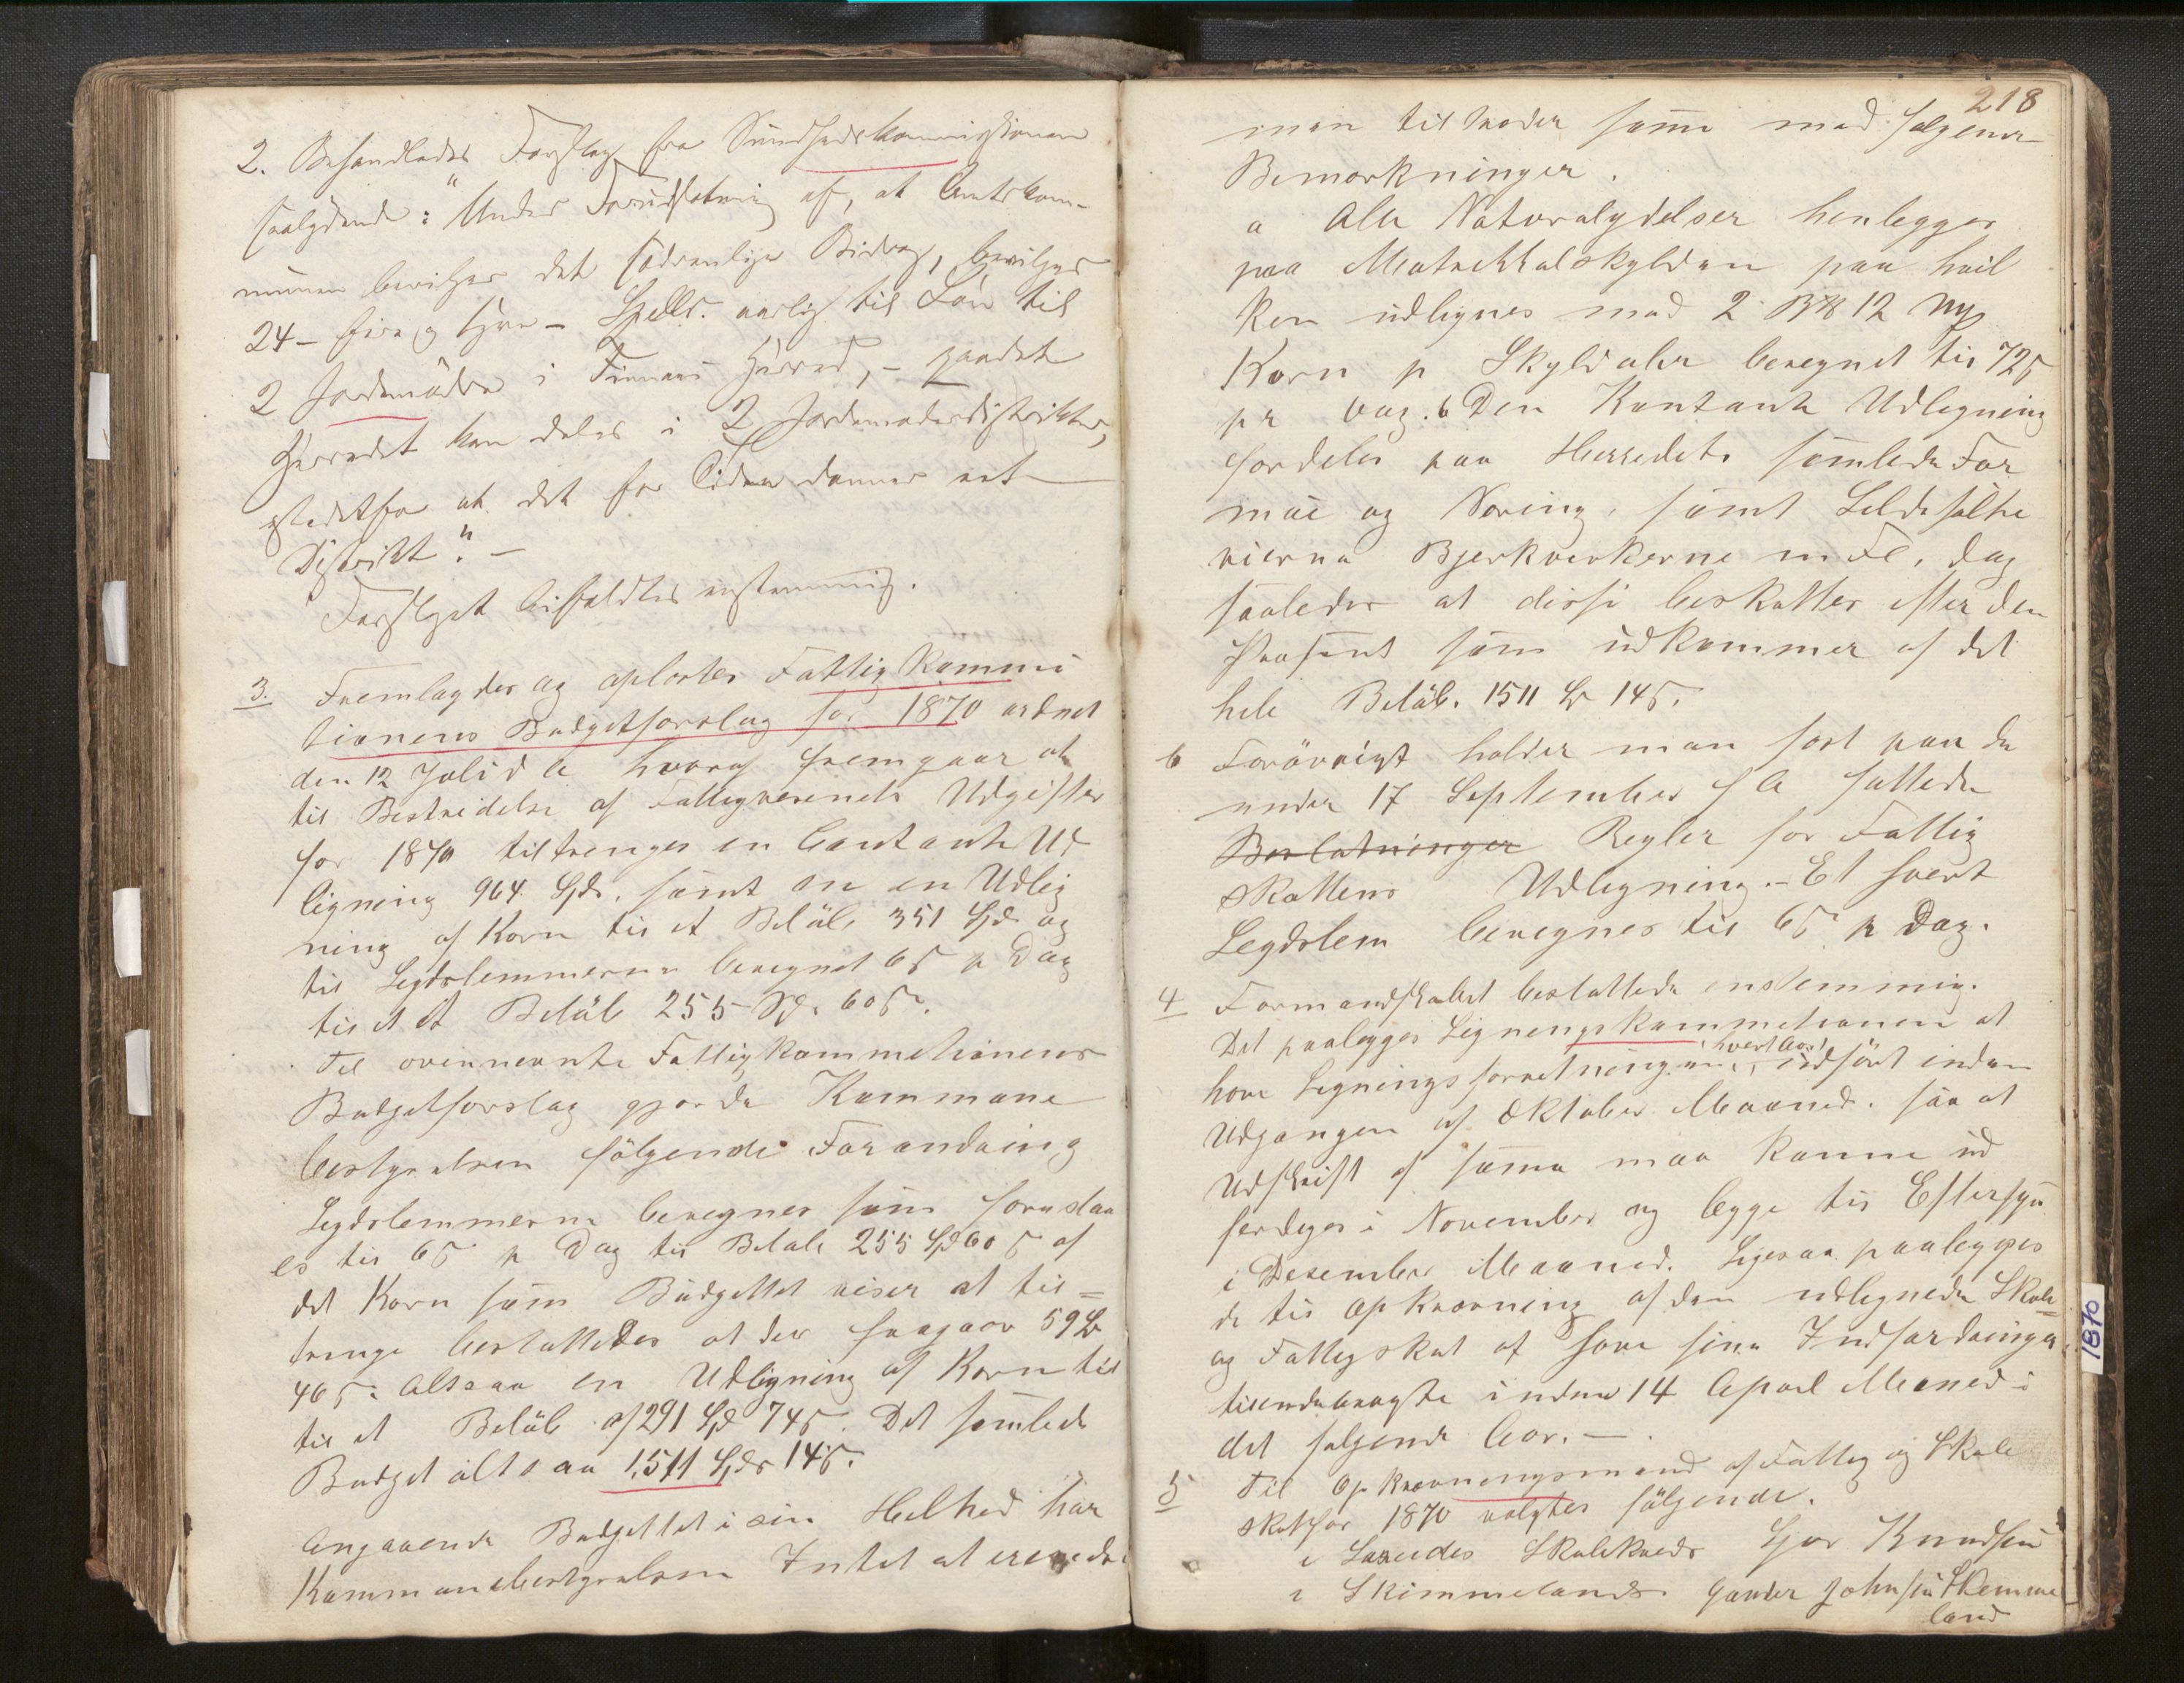 2. Behandledes Forslag fra Sundhedskommissionen
saalydende: "Under Forudsætning af, at Amtskom-
munen bevilger det sædvanlige Bidrag, bevilges
24 - fire og tyve - Spdlr. aarlig til Løn til
2 Jordmødre i Finnaas Herred, -
Herredet kan deles i 2 Jordemoderdistrikter,
istedetfor at det for Tiden danner eet
Distrikt". -
Forslaget bifaldtes enstemmig.
3. Fremlagdes og oplæstes Fattig Kommi
tionens Budgetforslag for 1870 ordnet
den 12 Juli d A hvoraf fremgaar at
til Bestridelse af Fattigvesenets Udgifter
for 1870 tiltrenges en Contante Ud
ligning 964 Spd. samt en Udlig
ning af Korn til et Beløb 351 Spd og
til Legdslemmerne beregnet 6 s p Dag
til et Beløb 255 Spd. 60 s.
Til ovennevnte Fattigkommetionens
Budgetforslag gjorde Kommune
bestyrelsen følgende Forandring
Legdslemmerne beregnes som forestaa
es til 6 s p Dag til Beløb 255 Spd 60 s af
det Korn som Budgettet viser at til=
trenge besluttedes at der fragaar 59
46 s. Altsaa en Udligning af Korn til
til et Beløb af 291 Spd 74 s. Det samlede
Budget altsaa 1,511 Spds 14 s.
Angaaende Budgettet i sin Helhed har
Kommunebestyrelsen Intet at
218
man tiltræder samme med følgende
Bemærkninger.
a Alle Naturalydelser henlegges
paa Matrikkulskylden paa hvil
ken udlignes med 2 12
Korn p Skylddaler beregnet til 72 s
pr Vog. b Den Kontante Udligning
fordeles paa Herredets samlede For
mue og Nering, samt Sildesalte
rierne Bjerkverkerne m Fl, dog
saaledes at disse beskattes efter den
Prosent som udkommer af det
hele Beløb. 1511 14 s.
6 Forøvrigt holder man fast paa de
under 17 September f A fattede
Beslutninger Regler for Fattig
skattens Udligning. - Et hvert
Legdslem beregnes til 6 s p Dag.
4 Formandskabet besluttede enstemmig.
Det paalegges Ligningskommetionen at
have Ligningsforretningerne hvert Aar udført inden
Udgangen af Oktober Maaned. saa at
Udskrift af samme maa kunne ud
ferdiges i November og legge til Eftersyn
i Desember Maaned. Ligesaa paalegges
de til Opkrævning af den udlignede Skole=
og Fattigskat at have sine Indfordringer
tilendebragte inden 14 April Maaned i
det følgende Aar. -
5 Til Opkrævningsmænd af Fattig og Skole
skat for 1870 valgtes følgende.
i Skolekreds Knudsen
i Skimmelands Gunder Johnsen Skimme
land
1870